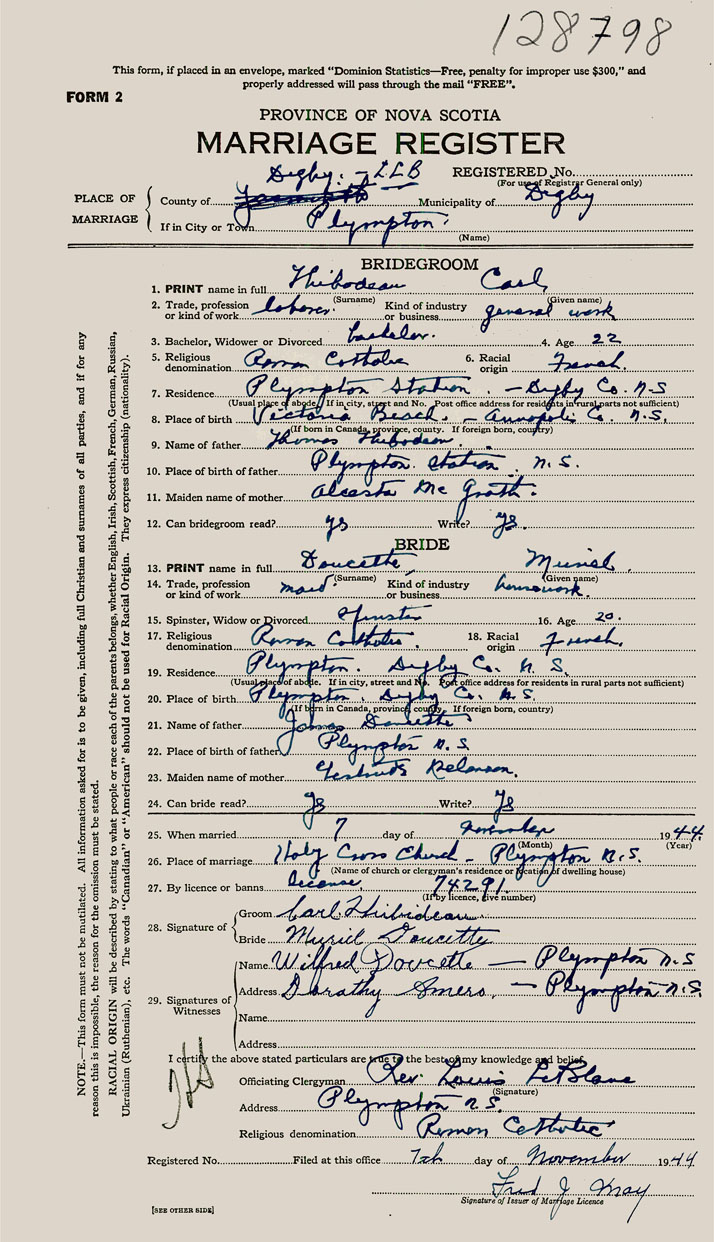 128798
This form, if placed in an envelope, marked "Dominion Statistics—Free, penalty for improper use $300," and
properly addressed will pass through the mail "FREE".
FORM 2
PROVINCE OF NOVA SCOTIA
MARRIAGE REGISTER
Digby. LLB REGISTERED No.
(For use of Registrar General only)
PLACE OF MARRIAGE
County of Municipality of Digby
If in City or Town Plympton
(Name)
BRIDEGROOM
1. PRINT name in full Thibodeau Carl
(Surname) (Given name)
2. Trade, profession or kind of work laborer. Kind of industry or business general work
3. Bachelor, Widower or Divorced bachelor. 4. Age 22
5. Religious denomination Roman Catholic 6. Racial origin French.
7. Residence Plympton Station. - Digby Co. N-S
(Usual place of abode. If in city, street and No. Post office address for residents in rural parts not sufficient)
8. Place of birth Victoria Beach. - Annapolis Co. N.S.
(If born in Canada, province, county. If foreign born, country)
9. Name of father Thomas Thibodeau.
10. Place of birth of father Plympton Station. N.S.
11. Maiden name of mother Mc Grath.
12. Can bridegroom read? yes Write? yes.
BRIDE
13. PRINT name in full Doucette, Muriel
(Surname) (Given name)
14. Trade, profession or kind of work maid Kind of industry or business housework.
15. Spinster, Widow or Divorced Spinster 16. Age 20.
17. Religious denomination Roman Catholic. 18. Racial origin French.
19. Residence Plympton. Digby Co. N. S.
(Usual place of abode. If in city, street and No. Post office address for residents in rural parts not sufficient)
20. Place of birth Plympton. Digby Co. N.S.
(If born in Canada, province county. If foreign born, country)
21. Name of father Doucette
22. Place of birth of father Plympton N.S.
23. Maiden name of mother Gertrude Melanson.
24. Can bride read? yes Write? yes
25. When married 7 day of November 1944.
(Month) (Year)
26. Place of marriage Holy Cross Church - Plympton N.S.
(Name of church or clergyman's residence or location of dwelling house)
27. By licence or banns license 74291.
(If by licence, give number)
28. Signature of
Groom Carl Thibideau
Bride Muriel Doucette
29. Signatures of Witnesses
Name Wilfred Doucette — Plympton N.S
Address Dorathy Amero. — Plympton N.S.
Name
Address
I certify the above stated particulars are true to the best of my knowledge and belief.
Officiating Clergyman Rev. Louis LeBlanc
(Signature)
Address Plympton N.S.
Religious denomination Roman Catholic
Registered No. Filed at this office 7th day of November 1944
Fred J. May
Signature of Issuer of Marriage Licence
[SEE OTHER SIDE]
NOTE.—This form must not be mutilated. All information asked for is to be given, including full Christian and surnames of all parties, and if for any
reason this is impossible, the reason for the omission must be stated.
RACIAL ORIGIN will be described by stating to what people or race each of the parents belongs, whether English, Irish, Scottish, French, German, Russian,
Ukrainian (Ruthenian), etc. The words "Canadian" or "American" should not be used for Racial Origin. They express citizenship (nationality).